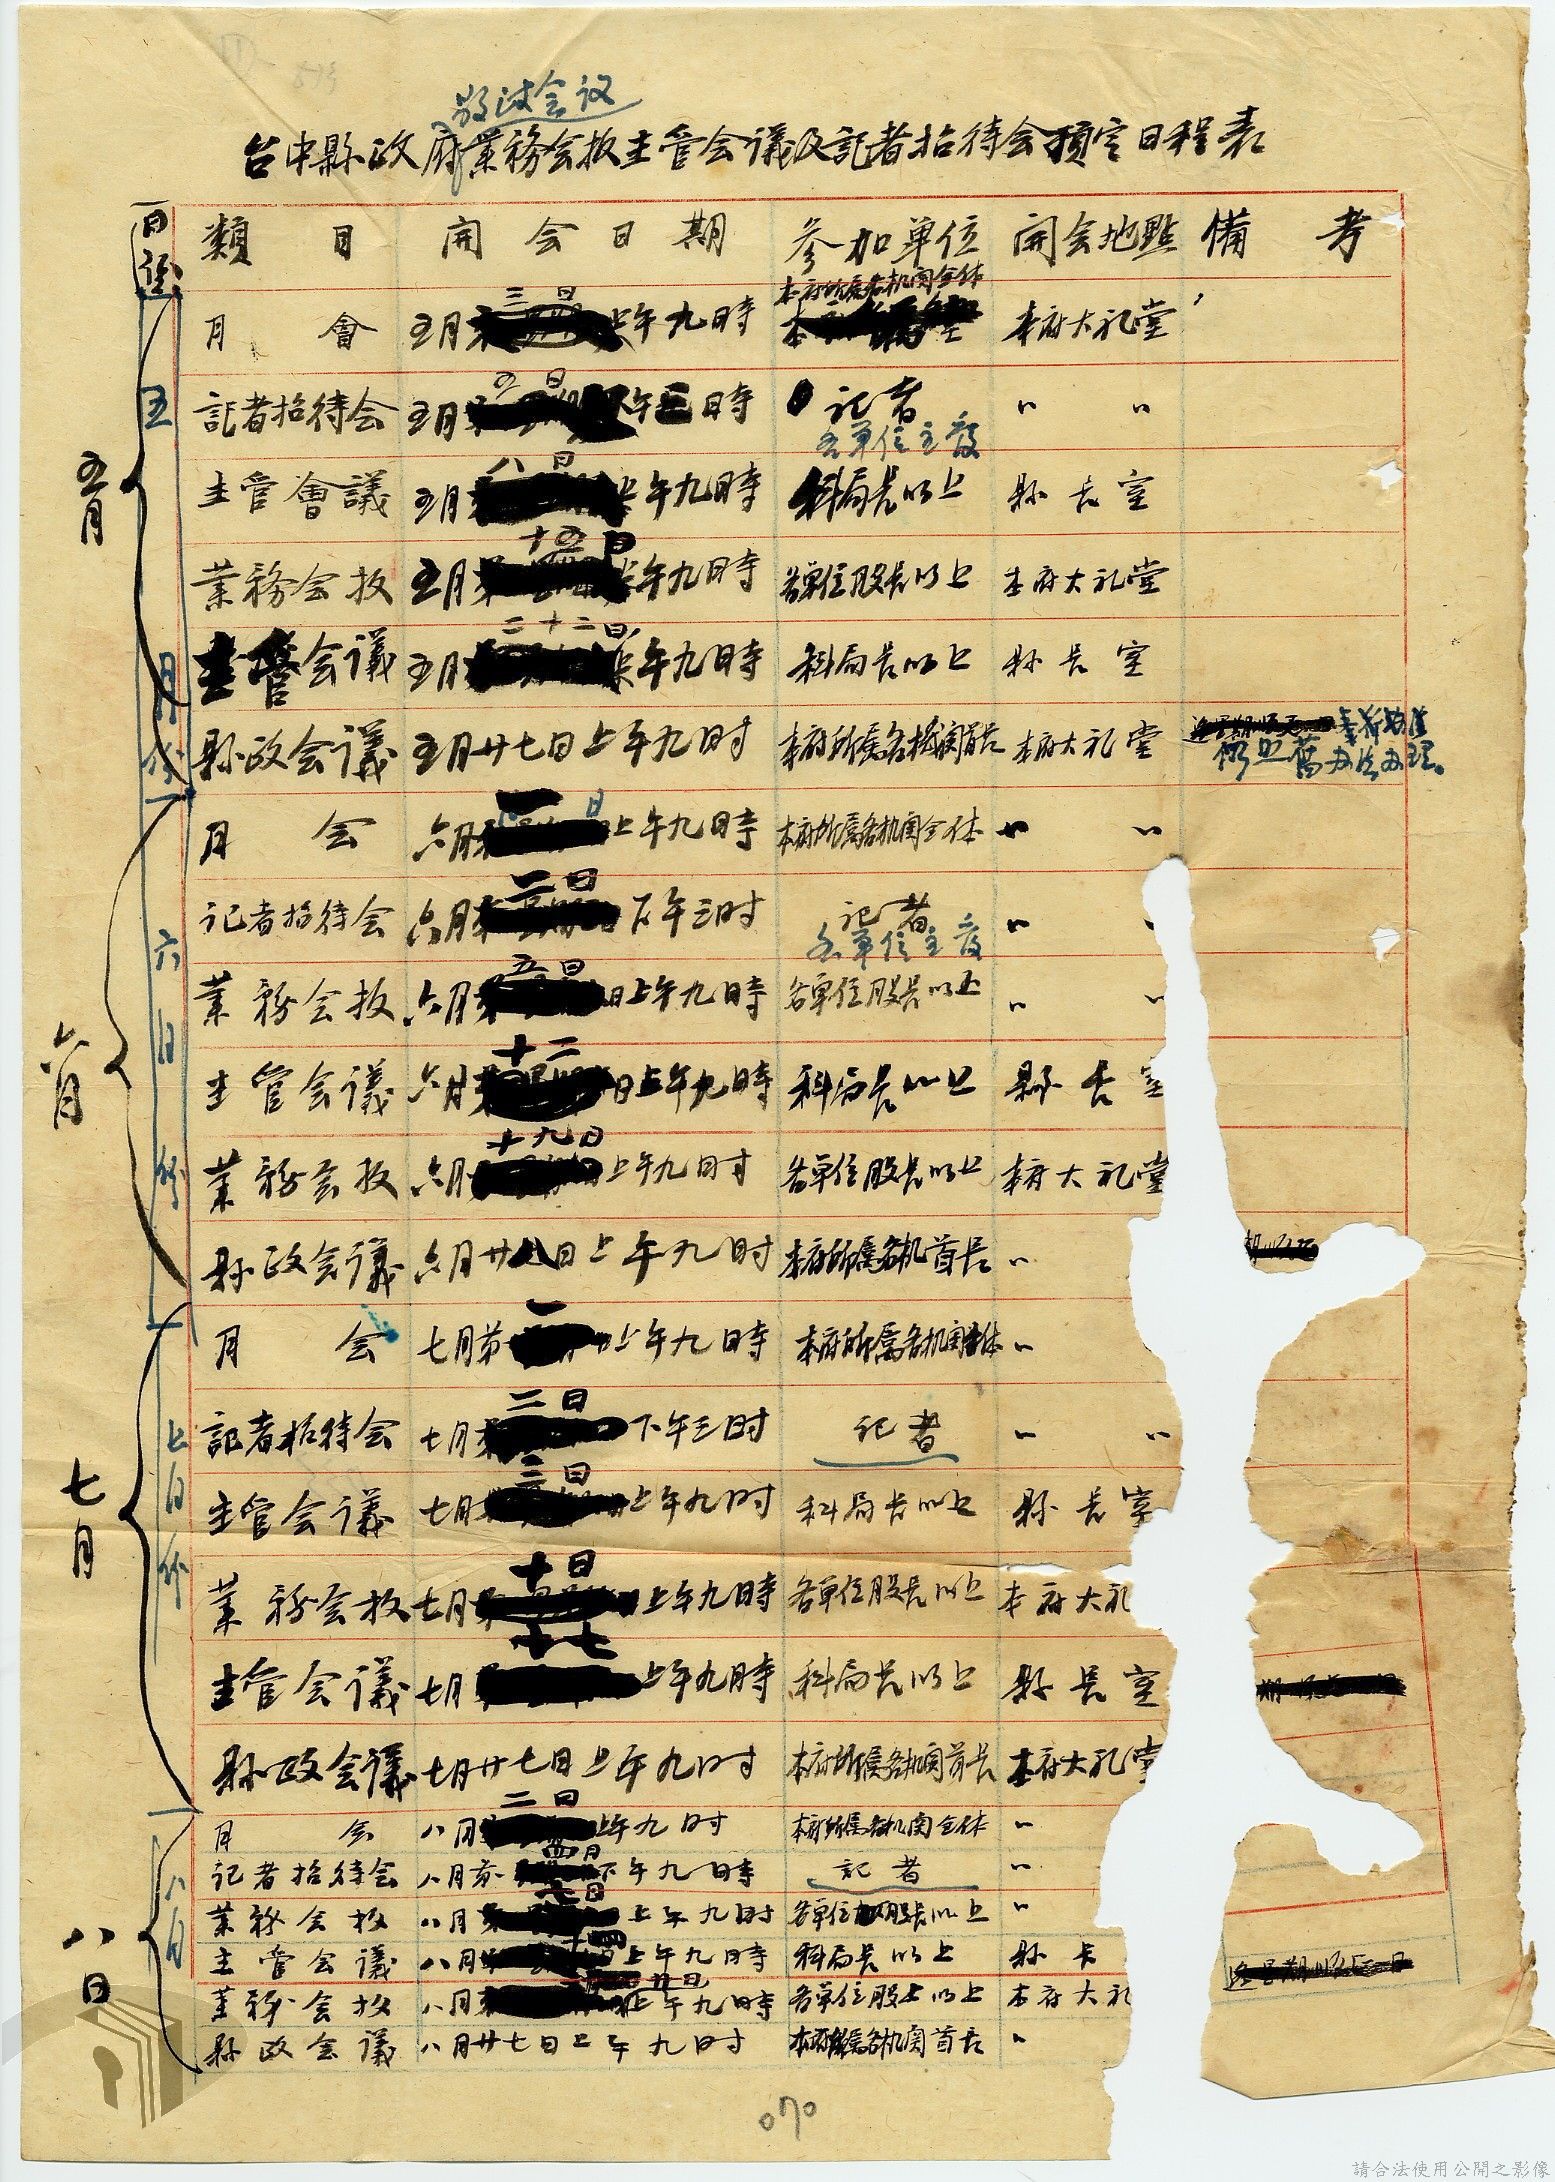 縣政会议
台中縣政府業務会报主管会議及記者招待会預定日程表
類目 開会日期 参加单位 開会地點 備考
月會 五月三日上午九時 本府所屬各机関全体 本府大礼堂
記者招待会 五月五日下午三時 記者 各單位主管 〃 〃
主管會議 五月八日上午九時 科局長以上 縣長室
業務会报 五月十五日上午九時 各單位股長以上 本府大礼堂
主管会議 五月二十二日上午九時 科局長以上 縣長室
縣政会議 五月廿七日上午九时 本府所属各機関首長 本府大礼堂 仍照舊办法办理。
月会 六月一日上午九時 本府所属各机関全体 〃 〃
記者招待会 六月二日下午三时 記者 各單位主管 〃 〃
業務会报 六月五日上午九時 各單位股長以上 〃 〃
主管会議 六月十二日上午九時 科局長以上 縣長室
業務会报 六月十九日上午九时 各單位股長以上 本府大礼堂
縣政会議 六月廿八日上午九时 本府所属各机首長 〃
月会 七月第一上午九時 本府所属各机関全体 〃
記者招待会 七月二日下午三时 記者 〃 〃
主管会議 七月三日上午九时 科局長以上 縣長室
業務会报 七月十日上午九時 各單位股長以上 本府大礼
主管会議 七月十七上午九時 科局長以上 縣長室
縣政会議 七月廿七日上午九时 本府所属各机関首長 本府大礼堂
月会 八月二日上午九时 本府所属各机関全体 〃
記者招待会 八月第四日下午九時 記者 〃
業務会报 八月七日上午九时 各單位股長以上 〃
主管会議 八月十四上午九時 科局長以上 縣長
業務会报 八月九日上午九時 各單位股長以上 本府大礼
縣政会議 八月廿七日上午九时 本府所属各机関首長 〃
五月
六月
七月
八月
五月份
六月份
七月份
八月
070
請合法使用公開之影像